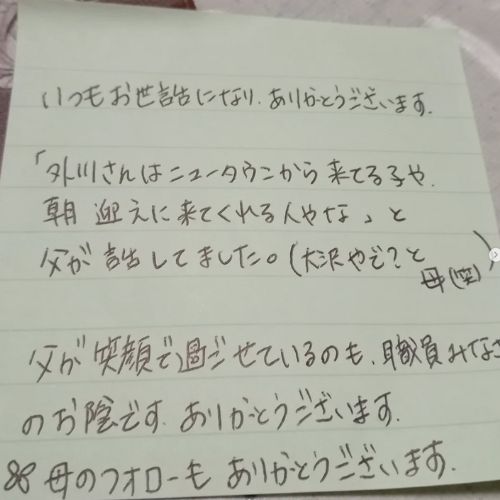 いつもお世話になり、ありがとうございます。
「外川さんはニュータウンから来てる子や、
朝 迎えに来てくれる人やな」と
父が話してました。(大沢やで?と
母(笑))
父が笑顔で過ごせているのも、職員みなさ
のお陰です。ありがとうございます。
母のフォローも ありがとうございます。